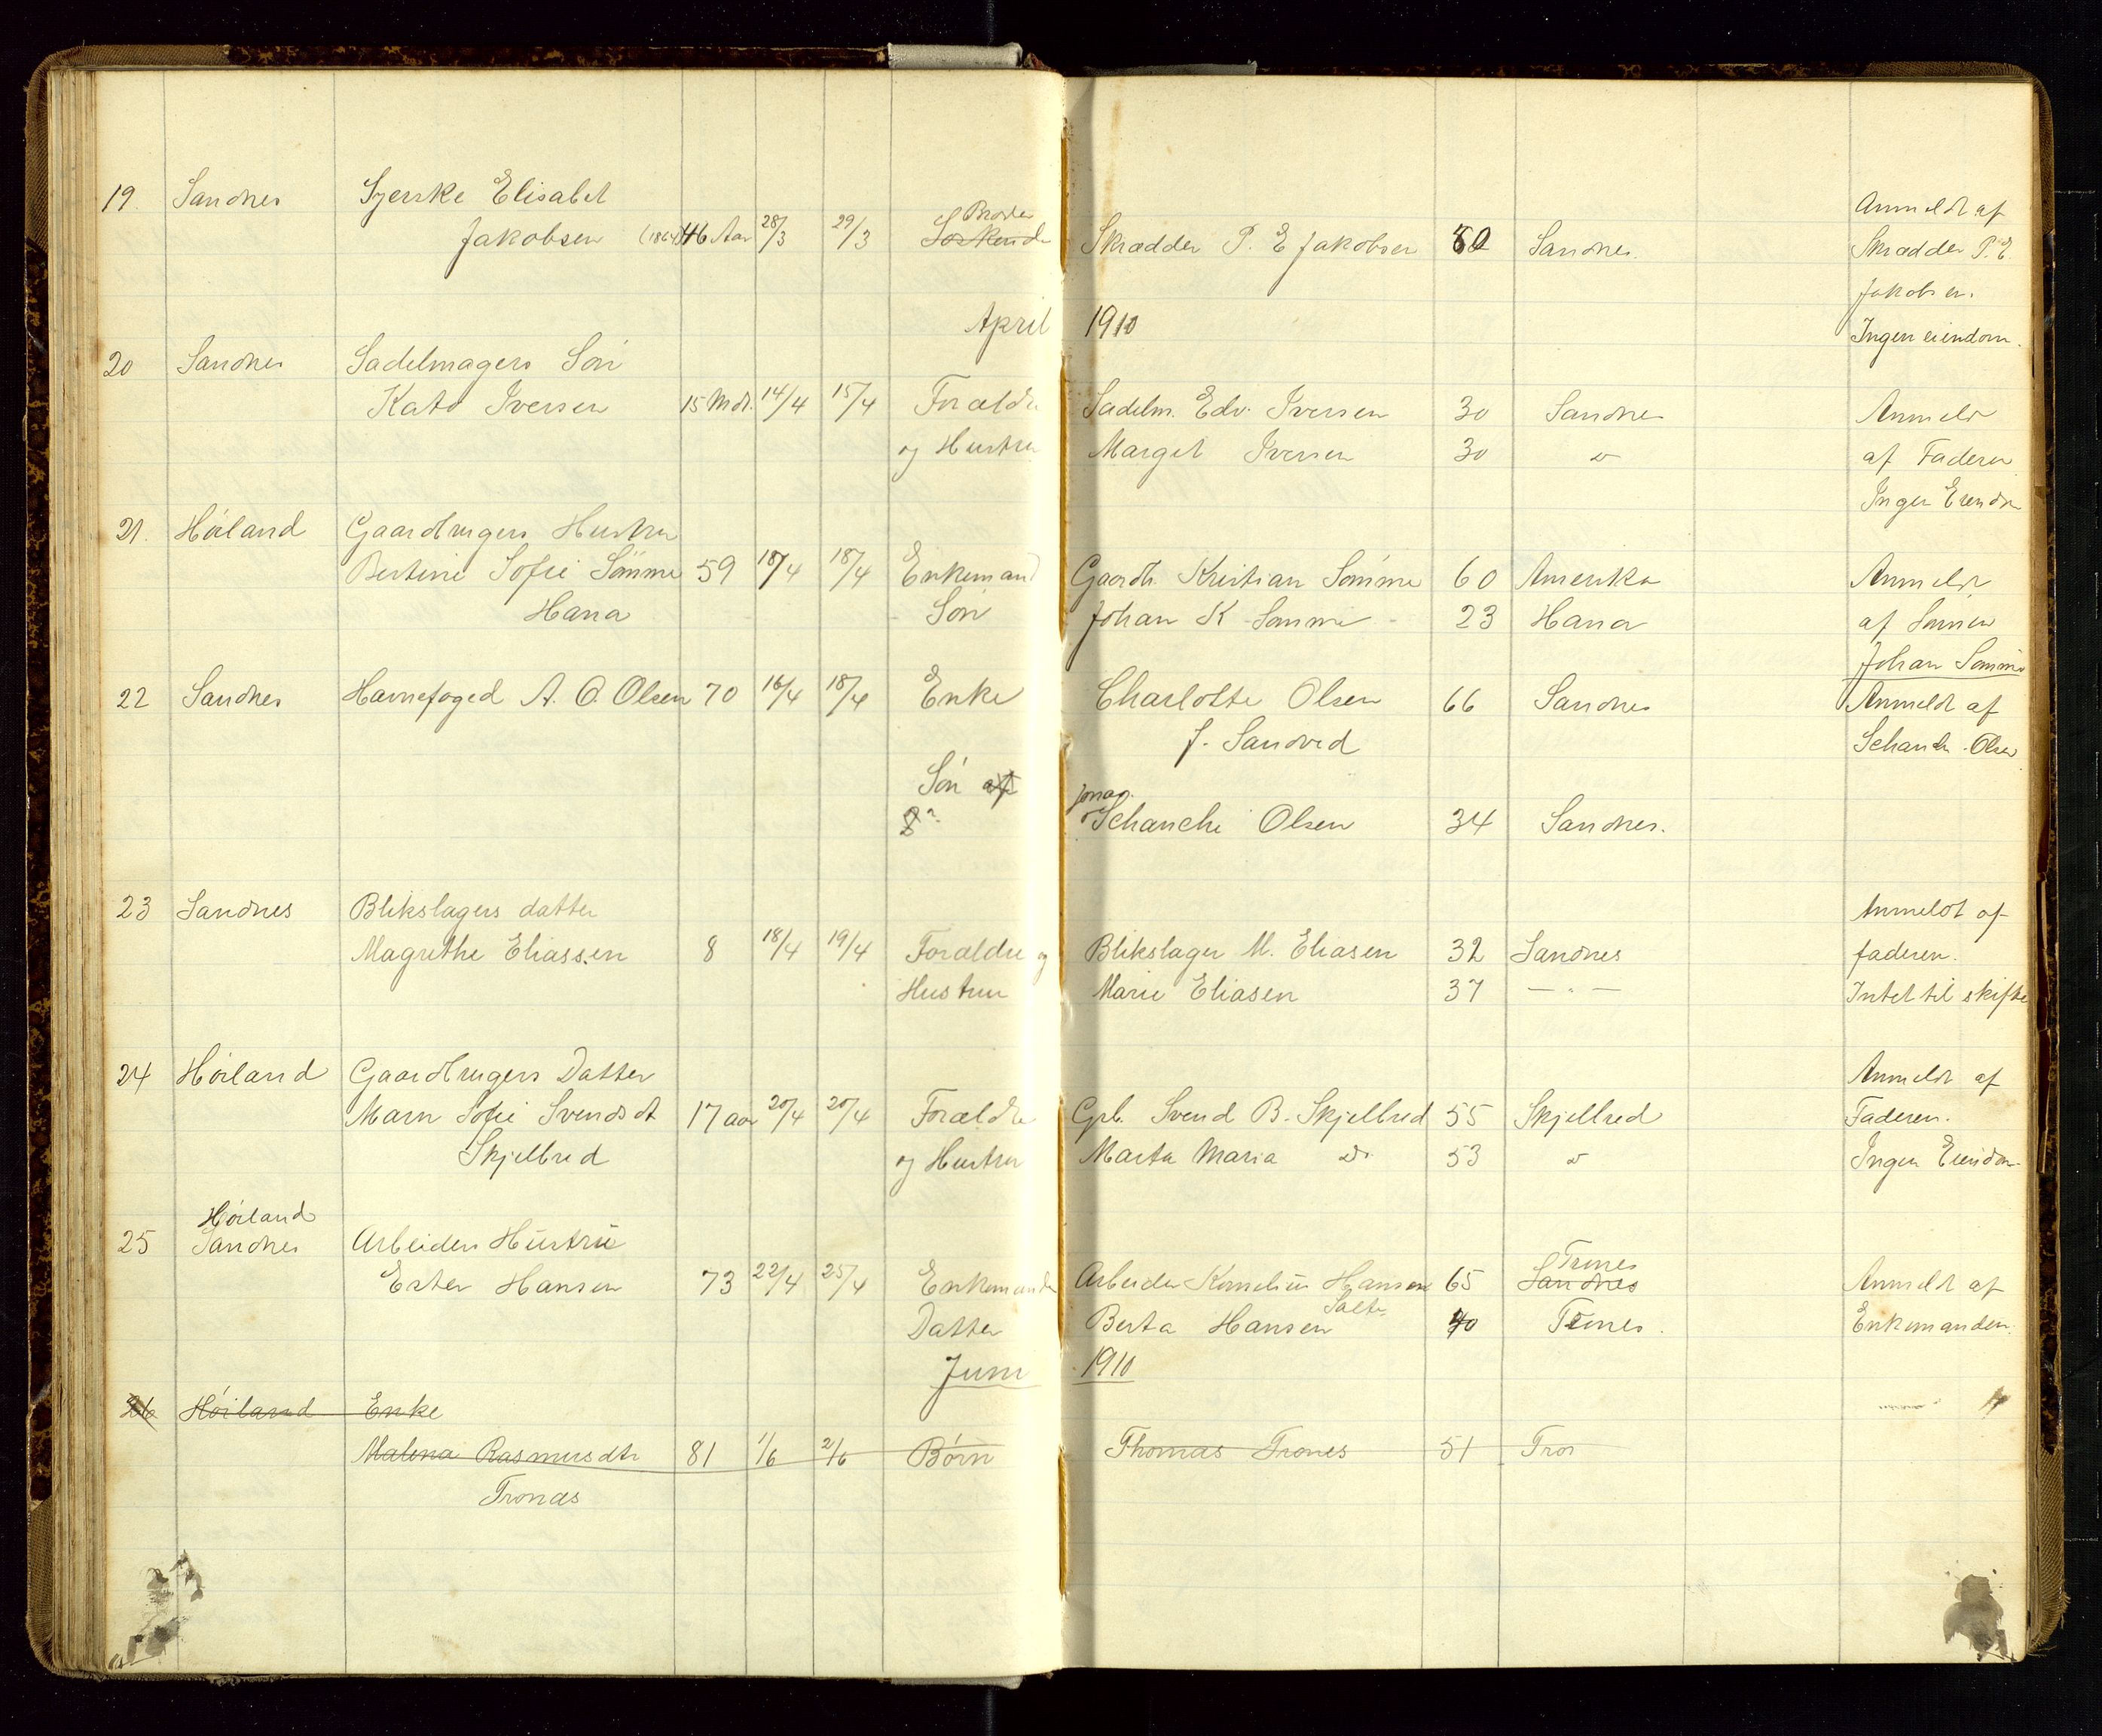 Anmeldt af
19. Sandnes Syerske Elisabet
Broder
Jakobsen (1864) 46 Aar 28/3 29/3 Søskende Skrædder P. E Jakobsen Sandnes. Skrædder P. E
Jakobsen.
April 1910 Ingen eiendom.
20 Sandnes Sadelmagers Søn
Kato Iversen 15 Mdr. 14/4 15/4 Forældre Sadelm. Edv. Iversen 30 Sandnes Anmeldt
og Hustru Marget Iversen 30 " af Faderen
Ingen Eiendom
21. Høiland Gaardbrugers Hustru
Bertine Sofie Sømme 59 18/4 18/4 Enkemand Gaardb. Kristian Sømme 60 Amerika Anmeldt
Hana Søn Johan K Sømme 23 Hana af Sønnen
Johan Sømme
22 Sandnes Havnefoged A. O. Olsen 70 16/4 18/4 Enke Charlotte Olsen 66 Sandnes Anmeldt af
f. Sandved Schanche Olsen
Søn af
Jonas
Schanche Olsen 34 Sandnes.
23 Sandnes Blikslagers datter Anmeldt af
Magrethe Eliassen 8 18/4 19/4 Forældre og Blikslager M. Eliasen 32 Sandnes faderen.
Hustru Marie Eliasen 37 — " — Intet til skifte
24 Høiland Gaardbrugers Datter Anmeldt af
Marn Sofie Svendsdt 17 aar 20/4 20/4 Forældre Grb. Svend B. Skjelbred 55 Skjelbred Faderen.
Skjelbred og Hustru Marta Maria do 53 " Ingen Eiendom
Høiland
25 Sandnes Arbeiders Hustru
Trones
Ester Hansen 73 22/4 25/4 Enkemanden Arbeider Kornelius Hansen 65 Sandnes Anmeldt af
Datter Berta Hansen Salte 40 Trones. Enkemanden.
Juni 1910
26 Høiland Enke
Malena Rasmusdtr 81 1/6 2/6 Børn Thomas Trones 51 Tron
Tronæs